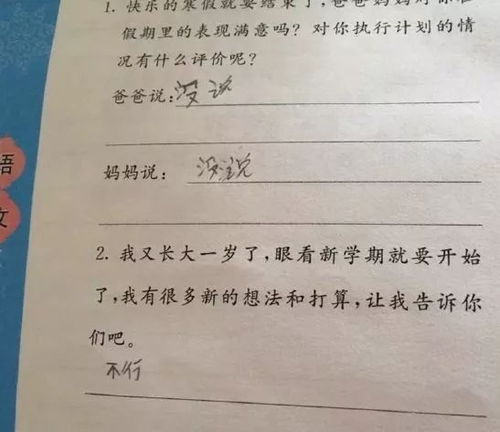 1. 快乐的寒假就要结束了，爸爸妈妈对你在
假期里的表现满意吗？对你执行计划的情
况有什么评价呢？
爸爸说：没说
妈妈说：没说
语
文
2. 我又长大一岁了，眼看新学期就要开始
了，我有很多新的想法和打算，让我告诉你
们吧。
不行